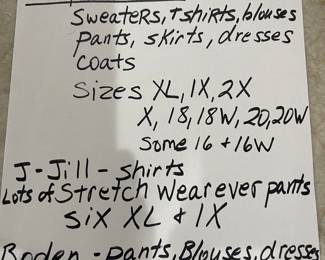 Sweaters, Tshirts, blouses
pants, skirts, dresses
coats
Sizes XL, 1X, 2X
X, 18, 18W, 20, 20W
Some 16 + 16W
J-Jill - shirts
Lots of Stretch Wearever pants
SiX XL + 1X
Boden - pants, Blouses, dresses